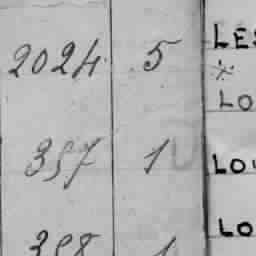 2024 5 LES
LO
357 1 LO
358 1 LO